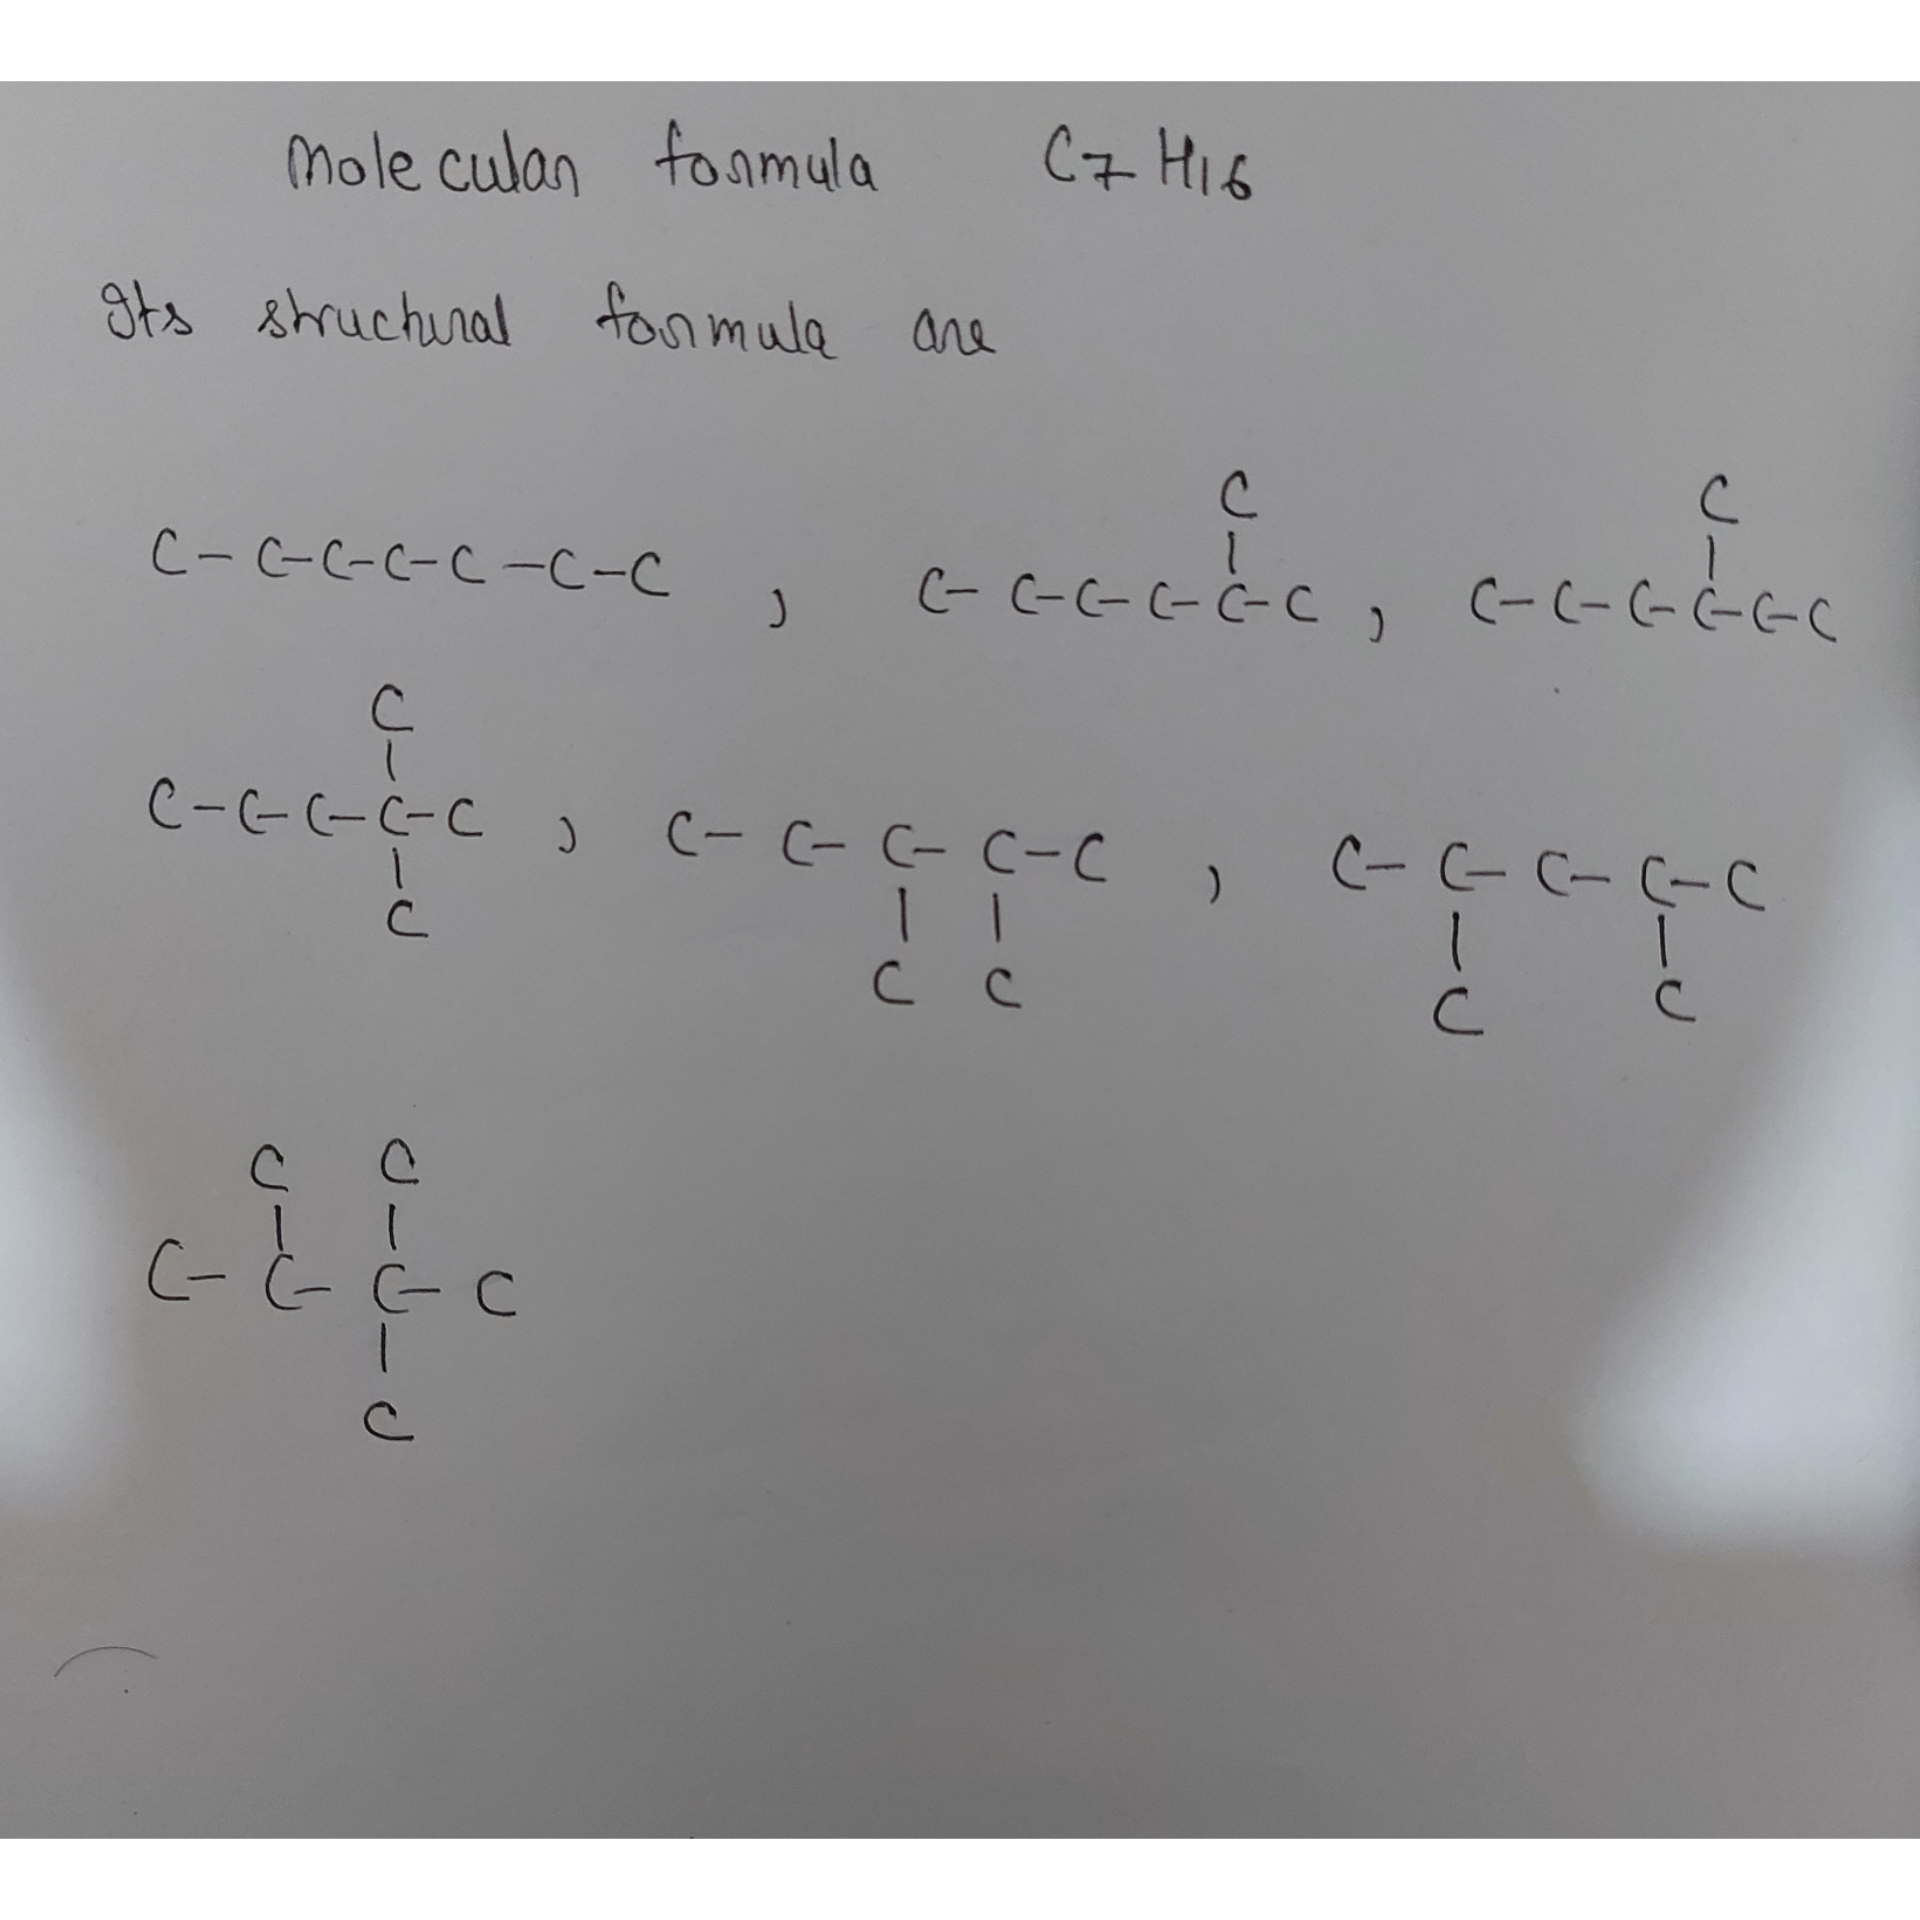 Molecular formula C7 H16
Its structural formula are
C
C
C-C-C-C-C-C-C , C-C-C-C-C-C , C-C-C-C-C-C
C
C-C-C-C-C , C-C-C-C-C , C-C-C-C-C
C
C C
C C
C C
C-C-C-C
C